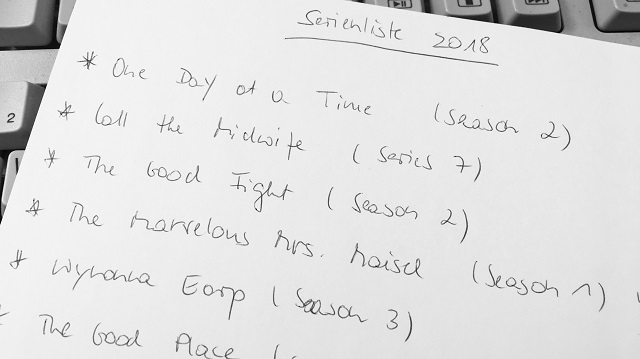 Serienliste 2018
* One Day at a Time (Season 2)
* Call the Midwife (Series 7)
* The Good Fight (Season 2)
* The Marvelous Mrs. Maisel (Season 1)
* Wynonna Earp (Season 3)
* The Good Place (
2